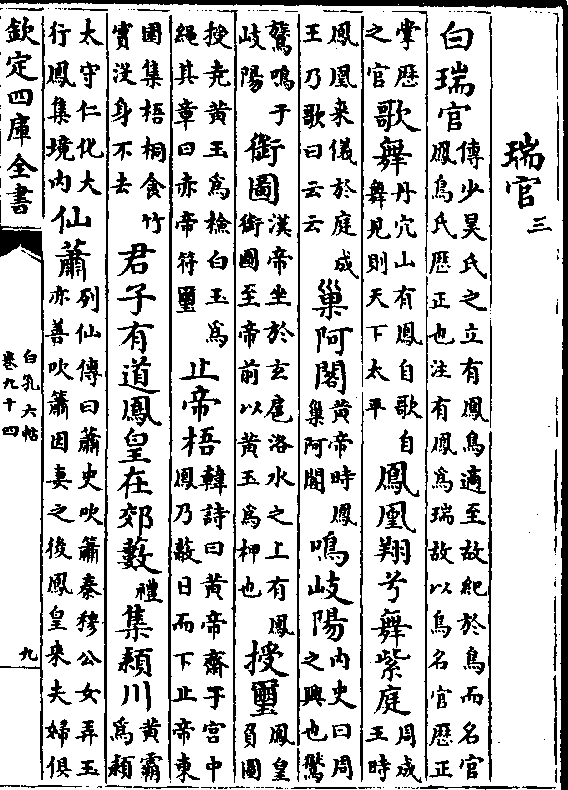 瑞官三
白瑞官傳少昊氏之立有鳳鳥適至故紀於鳥而名官鳳鳥氏歷正也注有鳳為瑞故以鳥名官歷正
掌歷之官歌舞丹穴山有鳳自歌自舞見則天下太平鳳凰翔兮舞紫庭周成王時
鳳凰来儀於庭成王乃歌曰云云巢阿閣黃帝時鳳巢阿閣鳴岐陽内史曰周之興也鸑
鷟鳴于岐陽銜圖漢帝坐於玄扈洛水之上有鳳銜圖至帝前以黃玉為柙也授璽鳳皇負圖
授尭黃玉為檢白玉為繩其章曰赤帝符璽止帝梧韓詩曰黃帝齋于宮中鳳乃蔽日而下止帝東
園集梧桐食竹實没身不去君子有道鳳皇在郊藪禮集潁川黃霸為潁
太守仁化大行鳳集境内仙蕭列仙傳曰蕭史吹簫秦穆公女弄玉亦善吹簫因妻之後鳳皇来夫婦俱
欽定四庫全書
白孔六帖
卷九十四
九